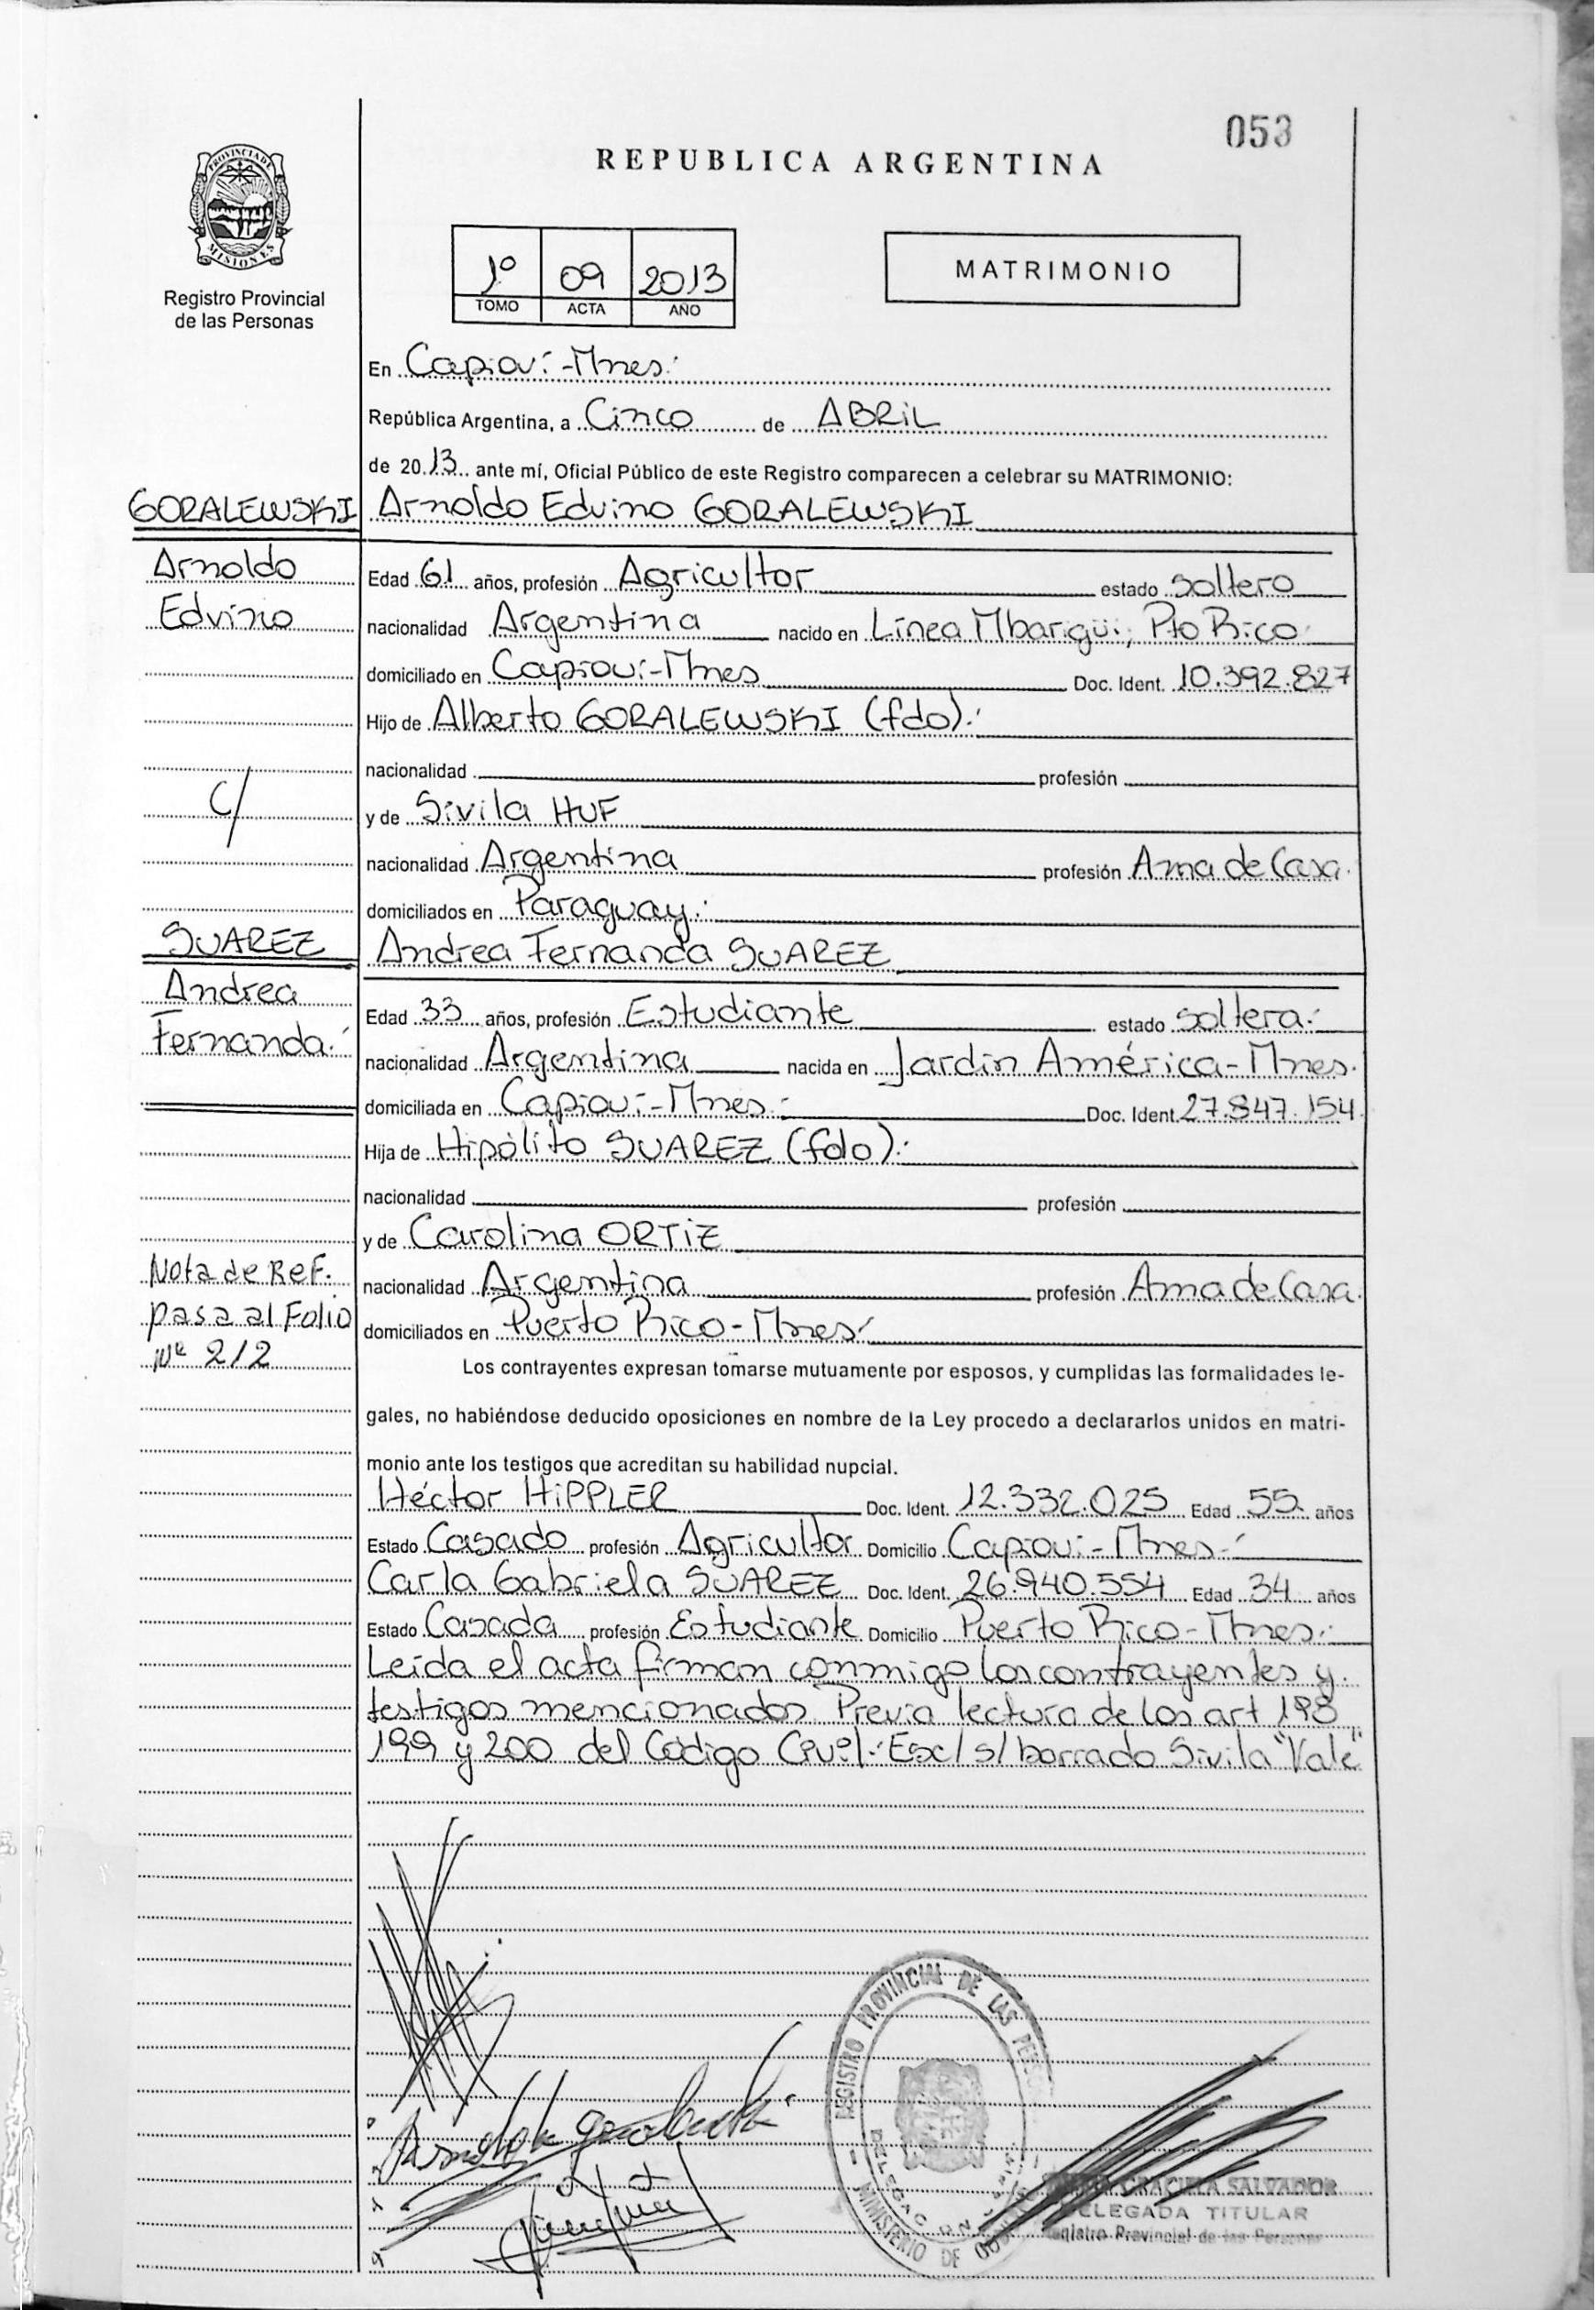 053
REPUBLICA ARGENTINA
PROVINCIA DE
MISIONES
Registro Provincial
de las Personas
1º 09 2013
TOMO ACTA AÑO
MATRIMONIO
En Capioví-Mnes.
República Argentina, a Cinco de ABRIL
de 2013 ante mí, Oficial Público de este Registro comparecen a celebrar su MATRIMONIO:
GORALEWSKI Arnoldo Edvino GORALEWSKI
Arnoldo Edad 61 años, profesión Agricultor estado soltero
Edvino nacionalidad Argentina nacido en Línea Mbarigüí, Pto Rico
domiciliado en Capioví-Mnes Doc. Ident. 10.392.827
Hijo de Alberto GORALEWSKI (fdo).
nacionalidad profesión
c/ y de Sivila HUF
nacionalidad Argentina profesión Ama de Casa.
domiciliados en Paraguay.
SUAREZ Andrea Fernanda SUAREZ
Andrea Edad 33 años, profesión Estudiante estado soltera.
Fernanda. nacionalidad Argentina nacida en Jardín América-Mnes.
domiciliada en Capioví-Mnes. Doc. Ident. 27.847.154
Hija de Hipólito SUAREZ (fdo).
nacionalidad profesión
y de Carolina ORTIZ
Nota de Ref. nacionalidad Argentina profesión Ama de Casa.
pasa al Folio domiciliados en Puerto Rico-Mnes
Nº 212
Los contrayentes expresan tomarse mutuamente por esposos, y cumplidas las formalidades le-
gales, no habiéndose deducido oposiciones en nombre de la Ley procedo a declararlos unidos en matri-
monio ante los testigos que acreditan su habilidad nupcial.
Héctor HIPPLER Doc. Ident. 12.332.025 Edad 55 años
Estado Casado profesión Agricultor Domicilio Capioví-Mnes-
Carla Gabriela SUAREZ Doc. Ident. 26.940.554 Edad 34 años
Estado Casada profesión Estudiante Domicilio Puerto Rico-Mnes.
Leída el acta firman conmigo los contrayentes y
testigos mencionados Previa lectura de los art 198
199 y 200 del Código Civil. Esc/s/borrado Sivila "Vale"
REGISTRO PROVINCIAL DE LAS
MINISTERIO DE
GRACIELA SALVADOR
DELEGADA TITULAR
Registro Provincial de las Personas